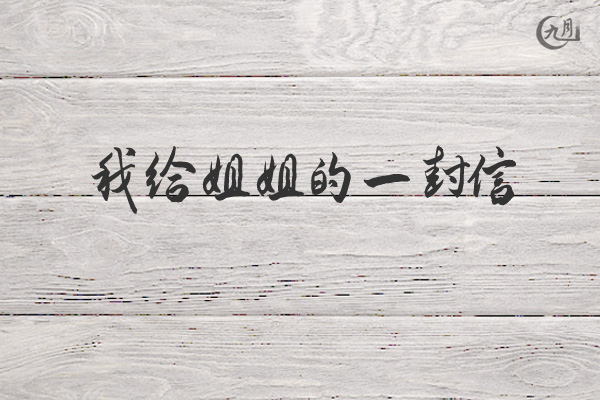 九月
我给姐姐的一封信